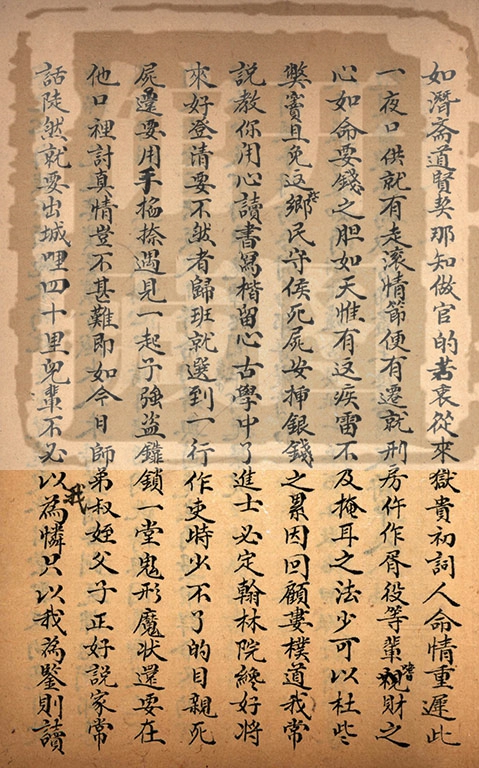 如濟斋道賢契那知做官的苦衷從來獄貴初詞人命情重遲此
一夜口供就有走滚情節便有遷就刑房仵作胥役等輩視財之
心如命要錢之胆如天惟有这疾雷不及掩耳之法少可以杜此
獘竇且免这鄉民守候死屍安揷銀錢之累因回顧婁樸道我常
說教你用心讀書寫楷留心古學中了進士必定翰林院終好將
來好登清要不然者歸班就選到一行作吏時少不了的目親死
屍邊要用手搖捺遇見一起子強盜鐵鎖一堂鬼形魔状還要在
他口裡討真情豈不甚難即如今日師弟叔姪父子正好說家常
話陡然就要出城哩四十里兒輩不必以我為憐只以我為鑒則讀